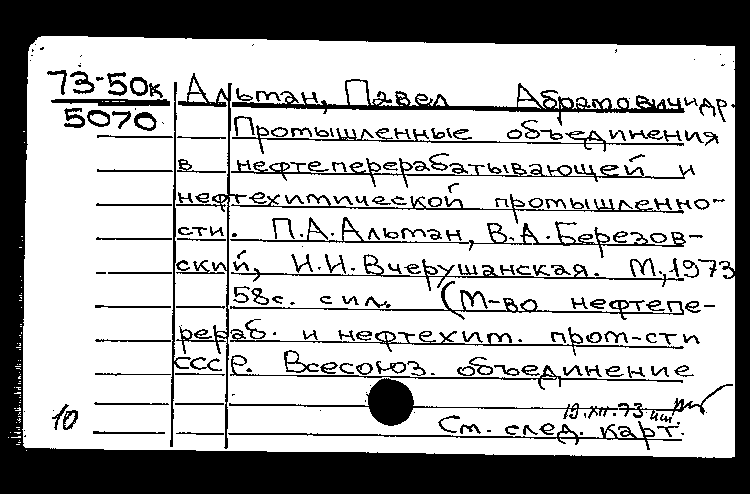 73-50к Альтман, Павел Абрамович и др.
5070 Промышленные объединения
в нефтеперерабатывающей и
нефтехимической промышленно-
сти. П.А.Альтман, В.А.Березов-
ский, И.И.Вчерушанская. М., 1973
58с. с ил. (М-во нефтепе-
рераб. и нефтехим. пром-сти
СССР. Всесоюз. объединение
19.XII.73
10 См. след. карт.